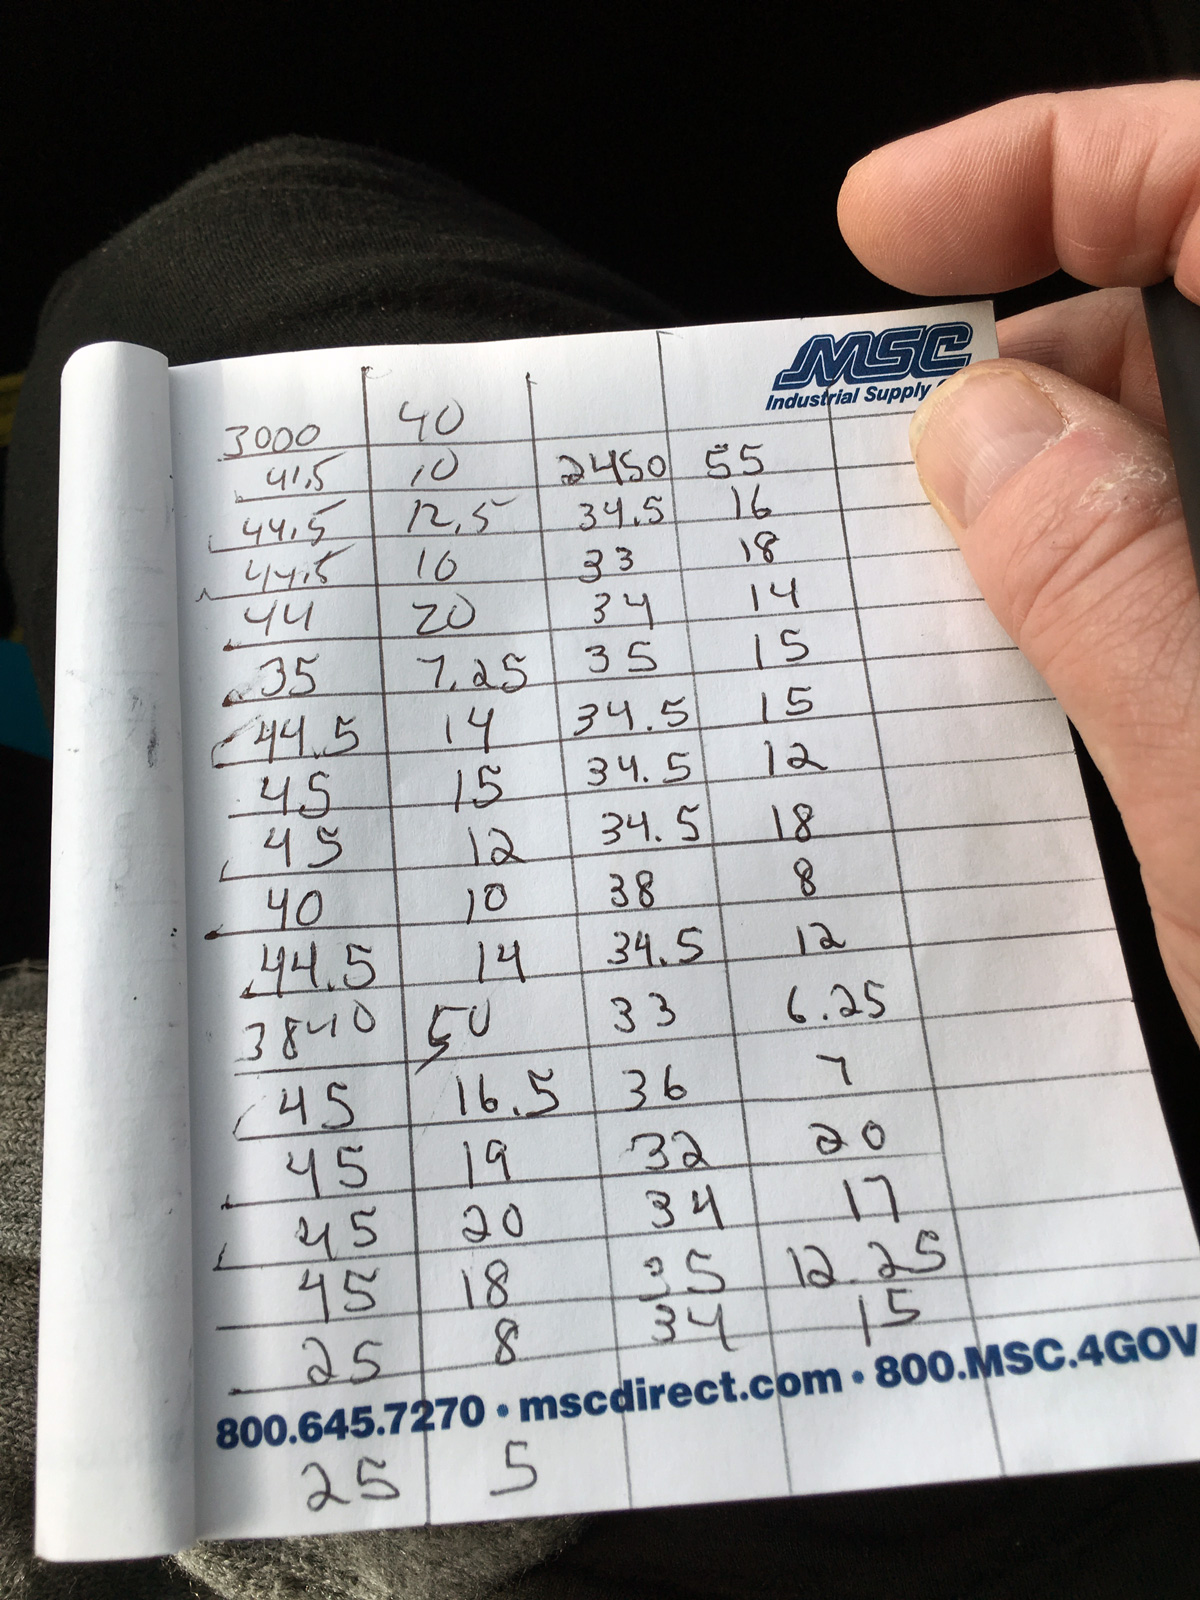 MSC
Industrial Supply
3000 40
41.5 10 2450 55
44.5 12.5 34.5 16
44.5 10 33 18
44 20 34 14
35 7.25 35 15
44.5 14 34.5 15
45 15 34.5 12
45 12 34.5 18
40 10 38 8
44.5 14 34.5 12
3840 50 33 6.25
45 16.5 36 7
45 19 32 20
45 20 34 17
45 18 35 12.25
25 8 34 15
800.645.7270 • mscdirect.com • 800.MSC.4GOV
25 5